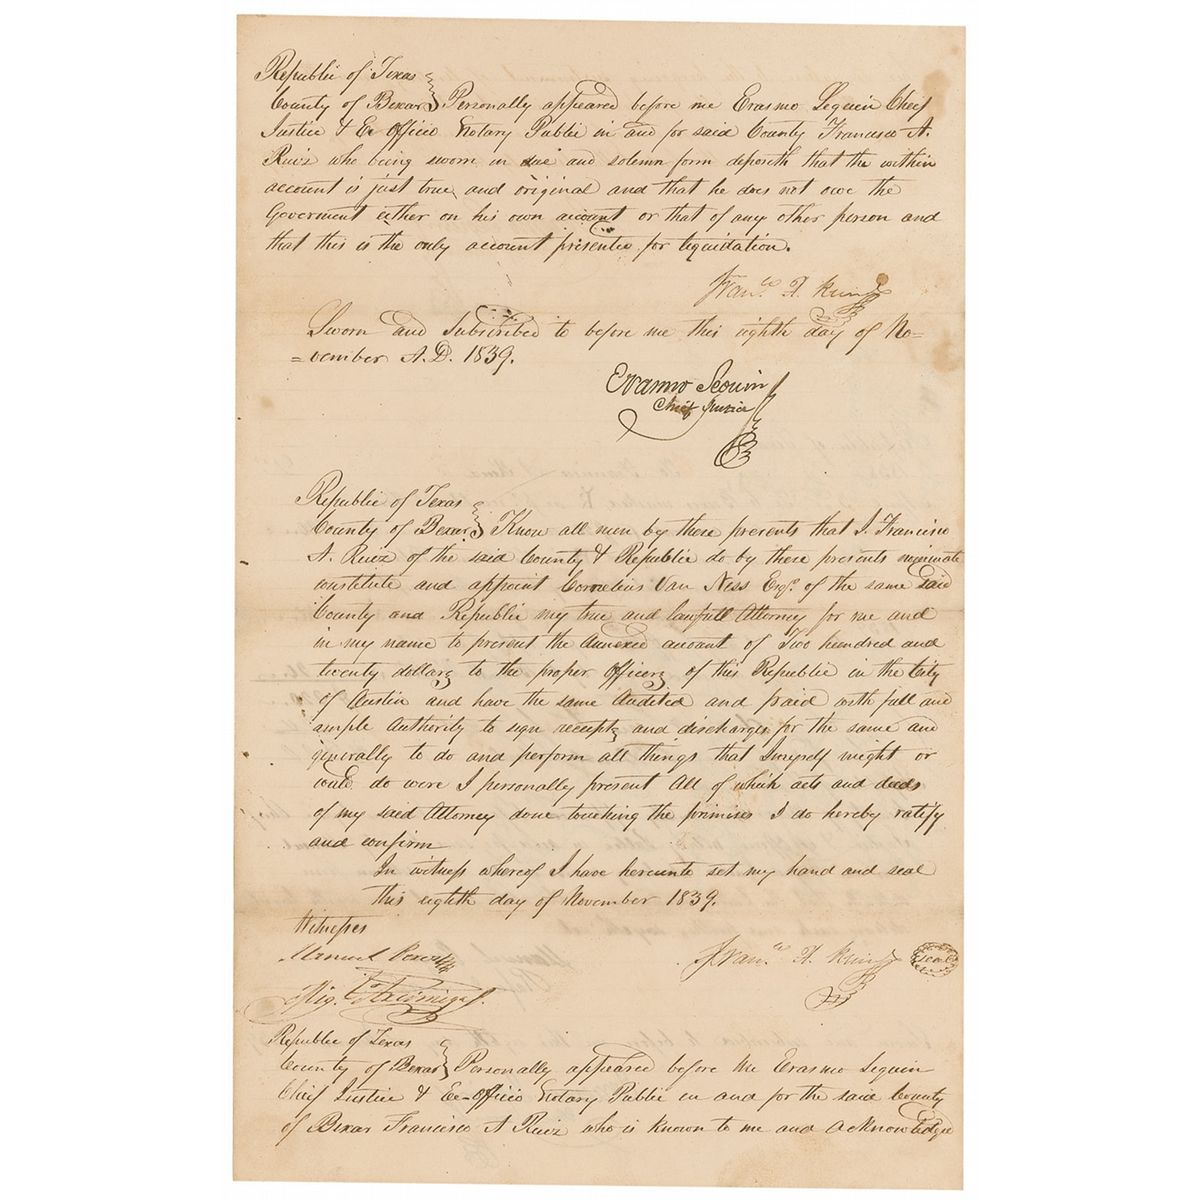 Republic of Texas
County of Bexar } Personally appeared before me Erasmo Seguin Chief
Justice & Ex Officio Notary Public in and for said County Francisco A.
Ruiz who being sworn in due and solemn form deposeth that the within
account is just true and original and that he does not owe the
Goverment either on his own account or that of any other person and
that this is the only account presented for liquidation.
Franco. A. Ruiz
Sworn and Subscribed to before me this eighth day of No-
=vember A.D. 1839.
Erasmo Seguin
Chief Justice
Republic of Texas
County of Bexar } Know all men by these presents that I. Francisco
A. Ruiz of the said County & Republic do by these presents nominate
constitute and appoint Cornelius Van Ness Esqr. of the same said
County and Republic my true and lawfull Attorney for me and
in my name to present the annexed amount of Two hundred and
twenty dollars to the proper Officers of this Republic in the City
of Austin and have the same Audited and paid with full and
ample Authority to sign receipts and discharges for the same and
generally to do and perform all things that I myself might or
could do were I personally present All of which acts and deeds
of my said Attorney done touching the primises I do hereby ratify
and confirm
In witness whereof I have hereunto set my hand and seal
this eighth day of November 1839.
Witnesses
Manuel Perez
Franco. A. Ruiz
Mig.
Republic of Texas
County of Bexar } Personally appeared before Me Erasmo Seguin
Chief Justice & Ex-Officio Notary Public in and for the said County
of Bexar Francisco A Ruiz who is known to me and Acknowledge